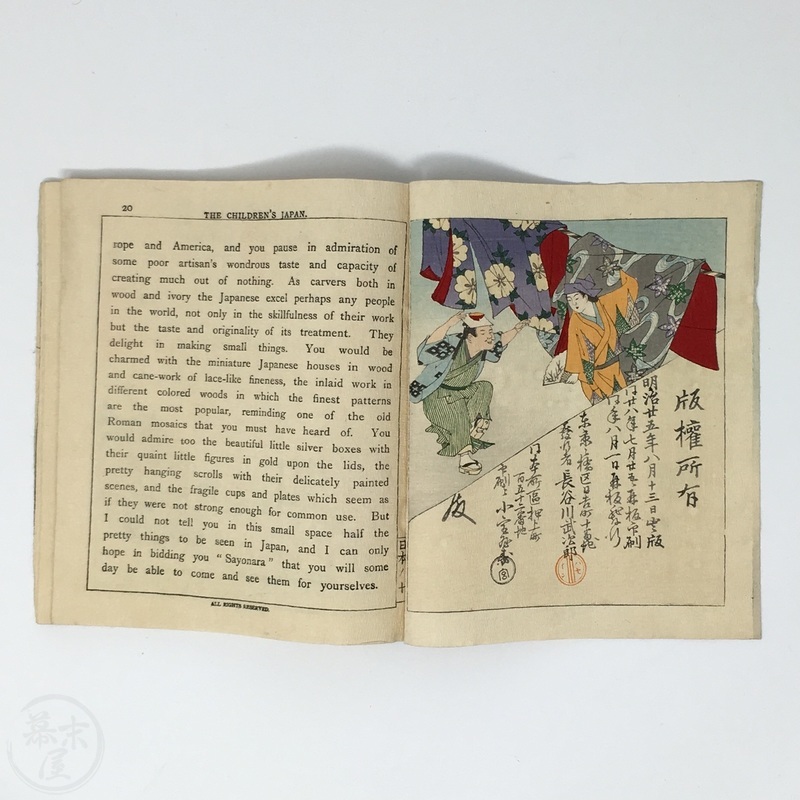 20
THE CHILDREN'S JAPAN.
rope and America, and you pause in admiration of
some poor artisan's wondrous taste and capacity of
creating much out of nothing. As carvers both in
wood and ivory the Japanese excel perhaps any people
in the world, not only in the skillfulness of their work
but the taste and originality of its treatment. They
delight in making small things. You would be
charmed with the miniature Japanese houses in wood
and cane-work of lace-like fineness, the inlaid work in
different colored woods in which the finest patterns
are the most popular, reminding one of the old
Roman mosaics that you must have heard of. You
would admire too the beautiful little silver boxes with
their quaint little figures in gold upon the lids, the
pretty hanging scrolls with their delicately painted
scenes, and the fragile cups and plates which seem as
if they were not strong enough for common use. But
I could not tell you in this small space half the
pretty things to be seen in Japan, and I can only
hope in bidding you "Sayonara" that you will some
day be able to come and see them for yourselves.
ALL RIGHTS RESERVED.
版權所有
明治廿五年八月十三日出版
廿八年七月廿五日再板印刷
年八月一日再板発行
東京々橋区日吉町十番地
発行者 長谷川武次郎
本所區押上町
百五十二番地
小宮
幕末屋